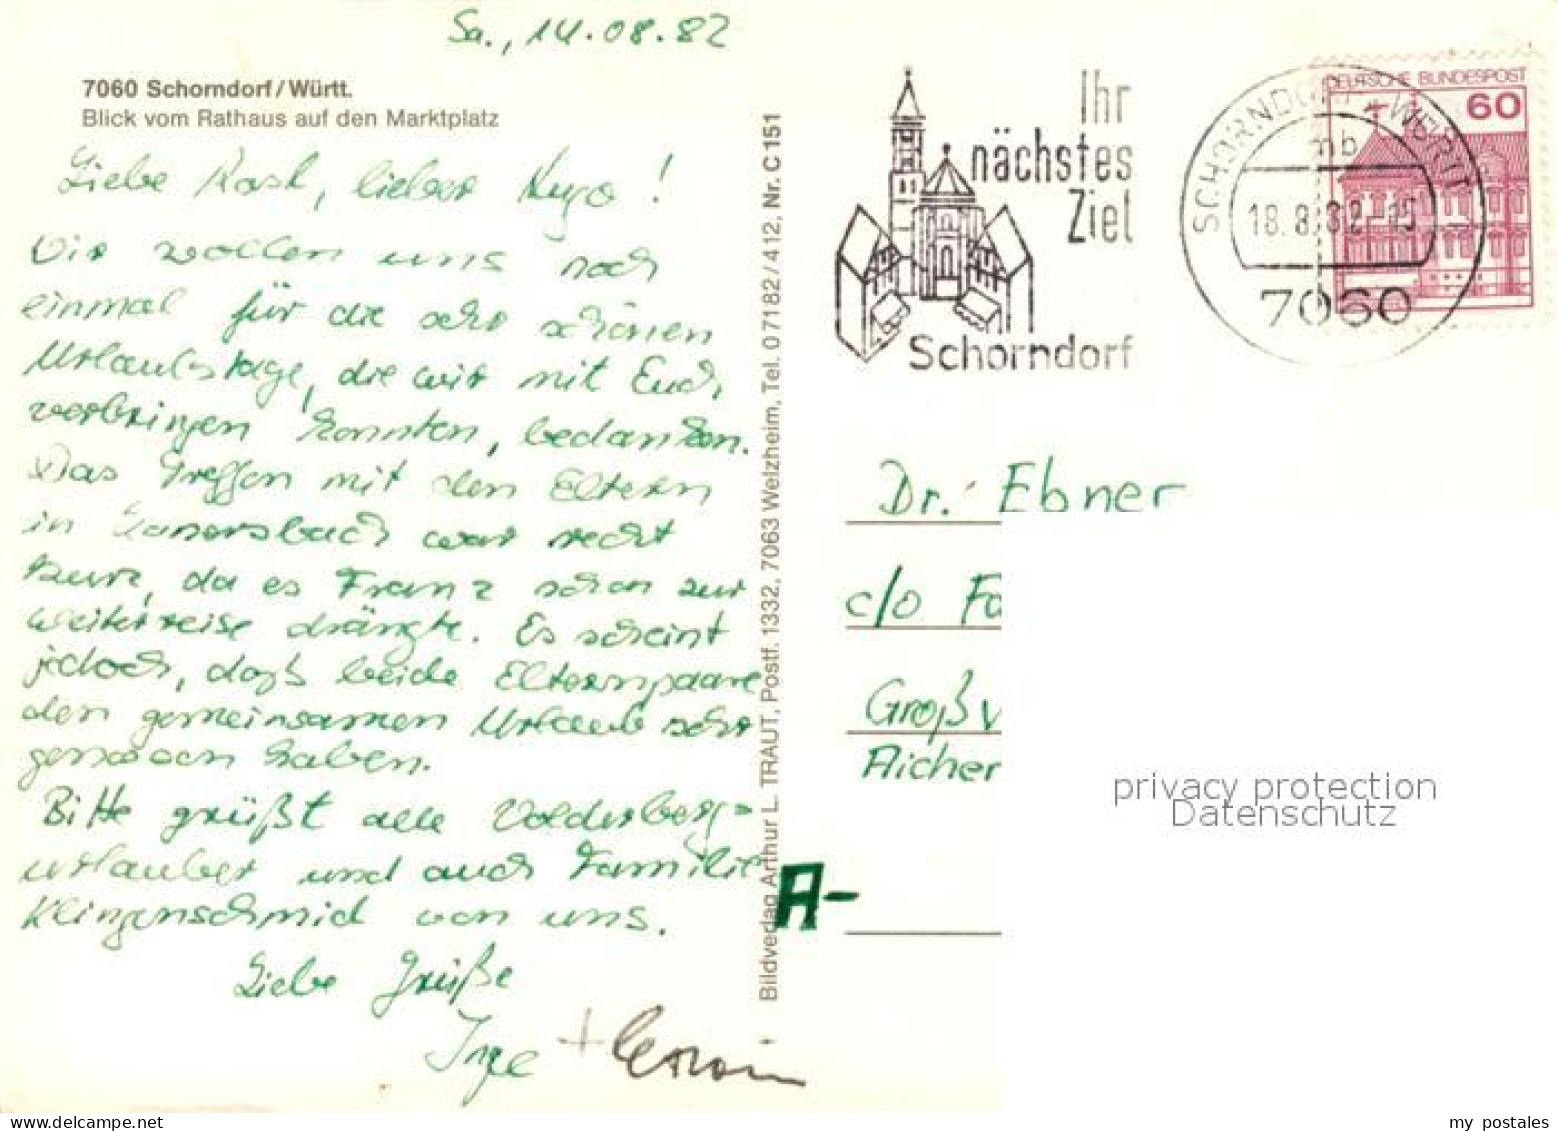 Sa., 14.08.82
7060 Schorndorf/Württ.
Blick vom Rathaus auf den Marktplatz
Liebe, lieber Hugo!
Wir wollen uns noch
einmal für die sehr schönen
Urlaubstage, die wir mit Euch
verbringen konnten, bedanken.
Das Treffen mit den Eltern
in Lanersbach war recht
kurz, da es Franz schon zur
Weiterreise drängte. Es scheint
jedoch, daß beide Elternpaare
den gemeinsamen Urlaub sehr
genossen haben.
Bitte grüßt alle Volderberg=
urlauber und auch Familie
Klingenschmid von uns.
Liebe Grüße
Inge + Erwin
Bildverlag Arthur L. TRAUT, Postf. 1332, 7063 Welzheim, Tel. 07182/412, Nr. C 151
Ihr
nächstes
Ziel
Schorndorf
SCHORNDORF, WÜRTT
mb
18.8.82-15
7060
DEUTSCHE BUNDESPOST
60
Dr. Ebner
c/o Fa
Großv
A-
Aicher
privacy protection
Datenschutz
my postales